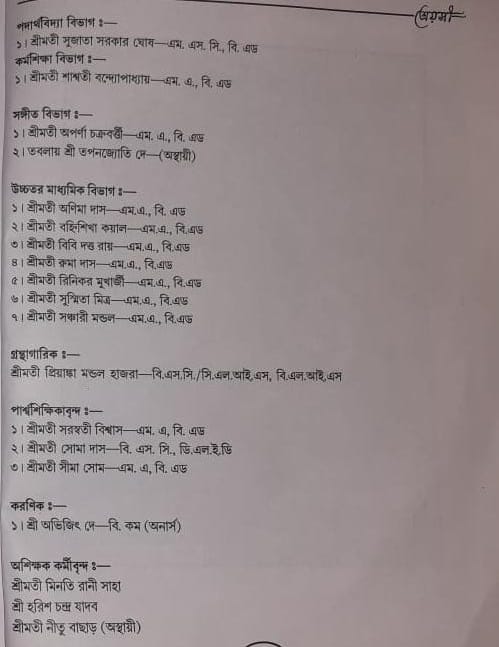 পদার্থবিদ্যা বিভাগ ঃ—
১। শ্রীমতী সুজাতা সরকার ঘোষ—এম. এস. সি., বি. এড
কর্মশিক্ষা বিভাগ ঃ—
১। শ্রীমতী শাশ্বতী বন্দ্যোপাধ্যায়—এম. এ., বি. এড
সঙ্গীত বিভাগ ঃ—
১। শ্রীমতী অপর্ণা চক্রবর্ত্তী—এম. এ., বি. এড
২। তবলায় শ্রী তপনজ্যোতি দে—(অস্থায়ী)
উচ্চতর মাধ্যমিক বিভাগ ঃ—
১। শ্রীমতী অনিমা দাস—এম.এ., বি. এড
২। শ্রীমতী বহ্নিশিখা কয়াল—এম.এ., বি.এড
৩। শ্রীমতী বিবি দত্ত রায়—এম.এ., বি.এড
৪। শ্রীমতী রুমা দাস—এম.এ., বি.এড
৫। শ্রীমতী রিনিকর মুখার্জী—এম.এ., বি.এড
৬। শ্রীমতী সুস্মিতা মিত্র—এম.এ., বি.এড
৭। শ্রীমতী সঞ্চারী মন্ডল—এম.এ., বি.এড
গ্রন্থাগারিক ঃ—
শ্রীমতী প্রিয়াঙ্কা মন্ডল হাজরা—বি.এস.সি./সি.এল.আই.এস, বি.এল.আই.এস
পার্শ্বশিক্ষিকাবৃন্দ ঃ—
১। শ্রীমতী সরস্বতী বিশ্বাস—এম. এ, বি. এড
২। শ্রীমতী সোমা দাস—বি. এস. সি., ডি.এল.ই.ডি
৩। শ্রীমতী সীমা সোম—এম. এ, বি. এড
করণিক ঃ—
১। শ্রী অভিজিৎ দে—বি. কম (অনার্স)
অশিক্ষক কর্মীবৃন্দ ঃ—
শ্রীমতী মিনতি রানী সাহা
শ্রী হরিশ চন্দ্র যাদব
শ্রীমতী নীতু বাছাড় (অস্থায়ী)